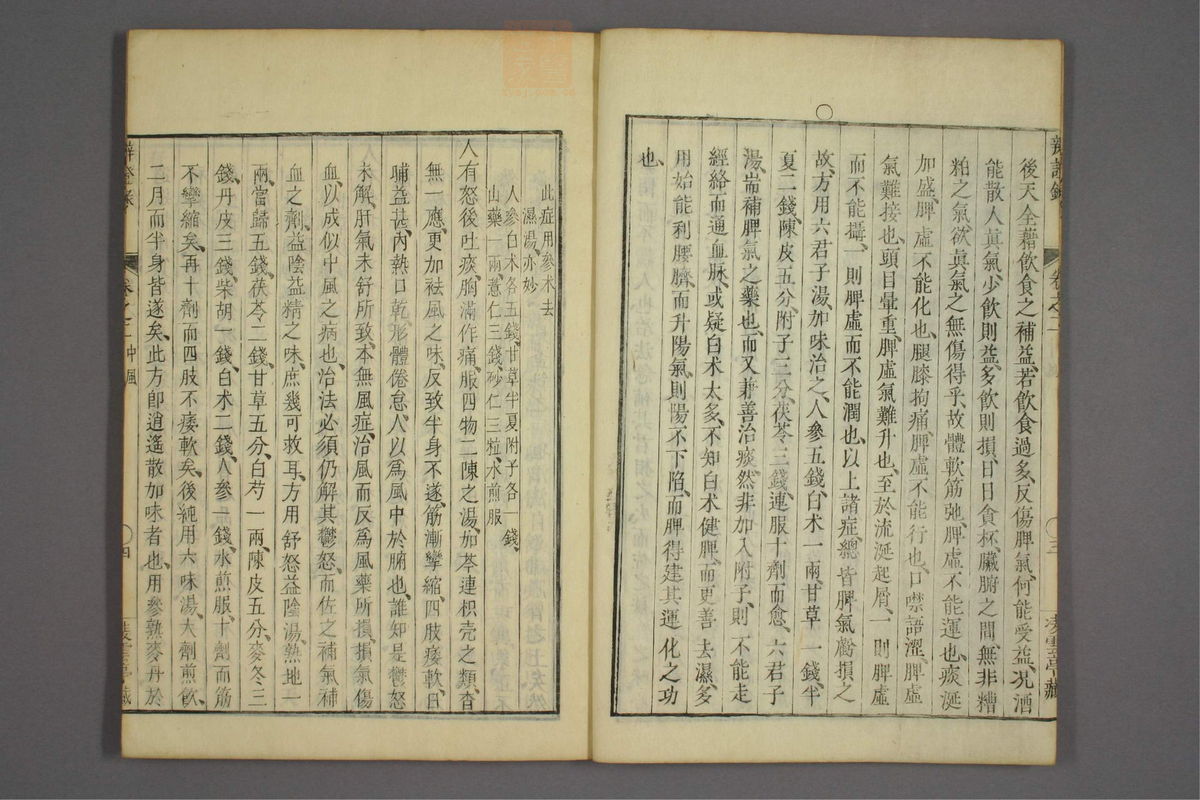 辨證錄 卷之二 三
後天全藉飲食之補益、若飲食過多、反傷脾氣、何能受益、况酒
能散人眞氣、少飲則益、多飲則損、日日貪杯、臟腑之間、無非糟
粕之氣、欲眞氣之無傷得乎、故體軟筋弛、脾虛不能運也、痰涎
加盛、脾虛不能化也、腿膝拘痛、脾虛不能行也、口噤語澀、脾虛
氣難接也、頭目暈重、脾虛氣難升也、至於流涎起屑、一則脾虛
而不能攝、一則脾虛而不能潤也、以上諸症、總皆脾氣虧損之
故、方用六君子湯、加味治之、人參五錢、白术一兩、甘草一錢、半
夏二錢、陳皮五分、附子三分、茯苓三錢、連服十劑而愈、六君子
湯、耑補脾氣之藥也、而又兼善治痰、然非加入附子、則不能走
經絡而通血脉、或疑白术太多、不知白术健脾、而更善去濕、多
用始能利腰臍、而升陽氣、則陽不下陷、而脾得建其運化之功
也、
此症用參术去
濕湯、亦妙
人參白术各五錢、甘草半夏附子各一錢、
山藥一兩、薏仁三錢、砂仁三粒、水煎服
人有怒後吐痰、胸滿作痛、服四物二陳之湯、加芩連枳壳之類、杳
無一應、更加祛風之味、反致半身不遂、筋漸攣縮、四肢痿軟、日
晡益甚、內熱口乾、形體倦怠、人以爲風中於腑也、誰知是鬱怒
未解、肝氣未舒所致、本無風症、治風而反爲風藥所損、損氣傷
血、以成似中風之病也、治法必須仍解其鬱怒、而佐之補氣補
血之劑、益陰益精之味、庶幾可救耳、方用舒怒益陰湯、熟地一
兩、當歸五錢、茯苓二錢、甘草五分、白芍一兩、陳皮五分、麥冬三
錢、丹皮三錢、柴胡一錢、白术二錢、人參一錢、水煎服、十劑而筋
不攣縮矣、再十劑而四肢不痿軟矣、後純用六味湯、大劑煎飲、
二月而半身皆遂矣、此方卽逍遙散加味者也、用參熟麥丹於
辨證錄 卷之二 中風 四